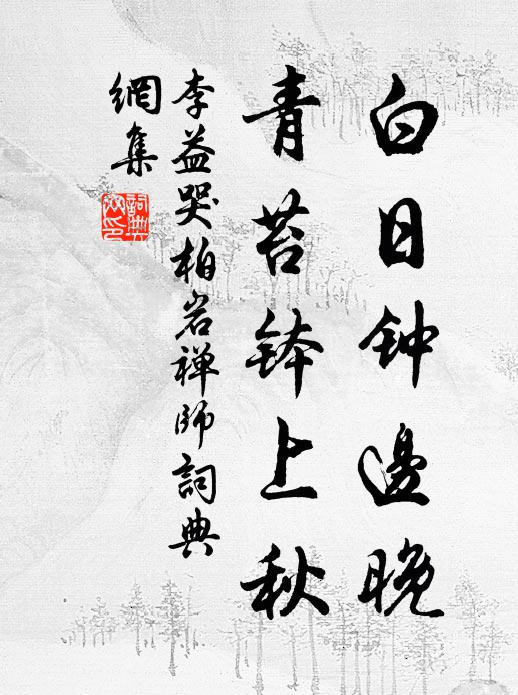 白日钟邊晚
青苔钵上秋
李益哭柏岩禅师詞典
網集
詞典
网印